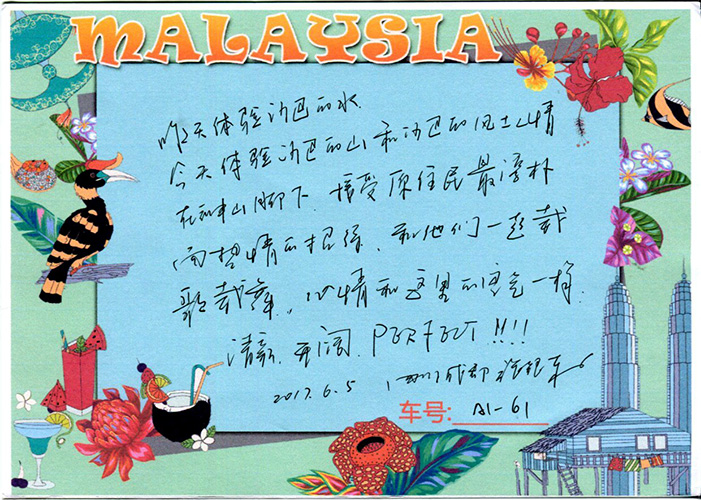 MALAYSIA
昨天体验沙巴的水
今天体验沙巴的山和沙巴的风土人情
在神山脚下，接受原住民最淳朴
而热情的招待，和他们一起载
歌载舞，心情和这里的天气一样
清新，开阔，PERFECT!!!!
2017.6.5 四川成都
车号: A1-61